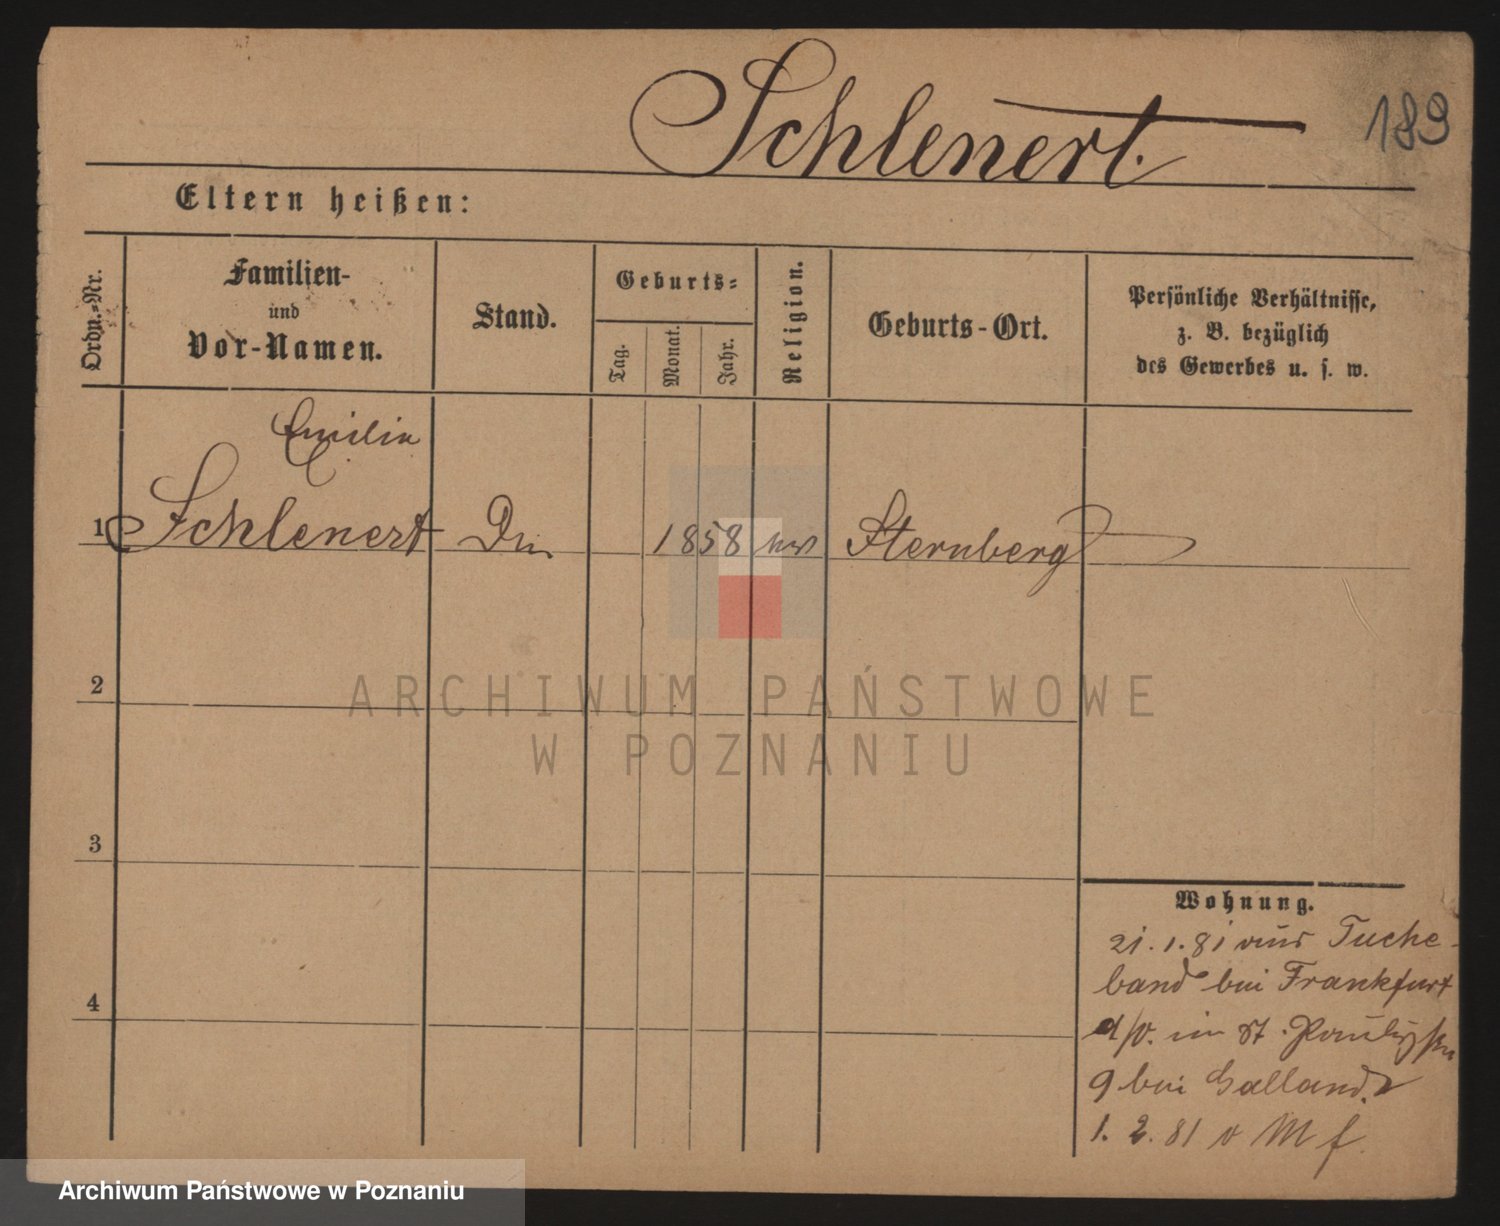 Schlenert.
189
Eltern heißen:
Ordn.-Nr.
Familien-
und
Vor-Namen.
Stand.
Geburts-
Tag.
Monat.
Jahr.
Religion.
Geburts-Ort.
Persönliche Verhältnisse,
z. B. bezüglich
des Gewerbes u. s. w.
Emilie
1 Schlenert 1858 Sternberg
2
ARCHIWUM PAŃSTWOWE
W POZNANIU
3
Wohnung.
21.1.81 aus Tsche-
band bei Frankfurt
a/O. in St. Pauly
9 bei Galland.
1.2.81
4
Archiwum Państwowe w Poznaniu